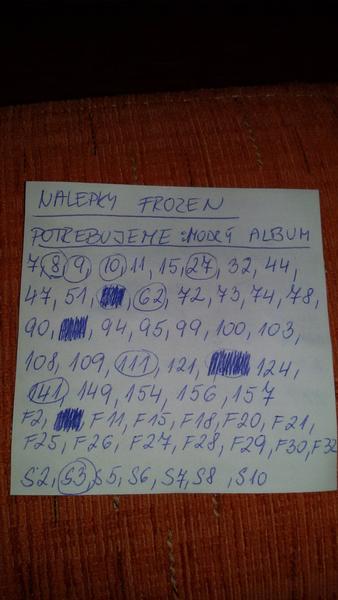 NALEPKY FROZEN
POTREBUJEME MODRÝ ALBUM
7, 8, 9, 10, 11, 15, 27, 32, 44,
47, 51, 62, 72, 73, 74, 78,
90, 94, 95, 99, 100, 103,
108, 109, 111, 121, 124,
141, 149, 154, 156, 157
F2, F11, F15, F18, F20, F21,
F25, F26, F27, F28, F29, F30, F32
S2, S3, S5, S6, S7, S8, S10